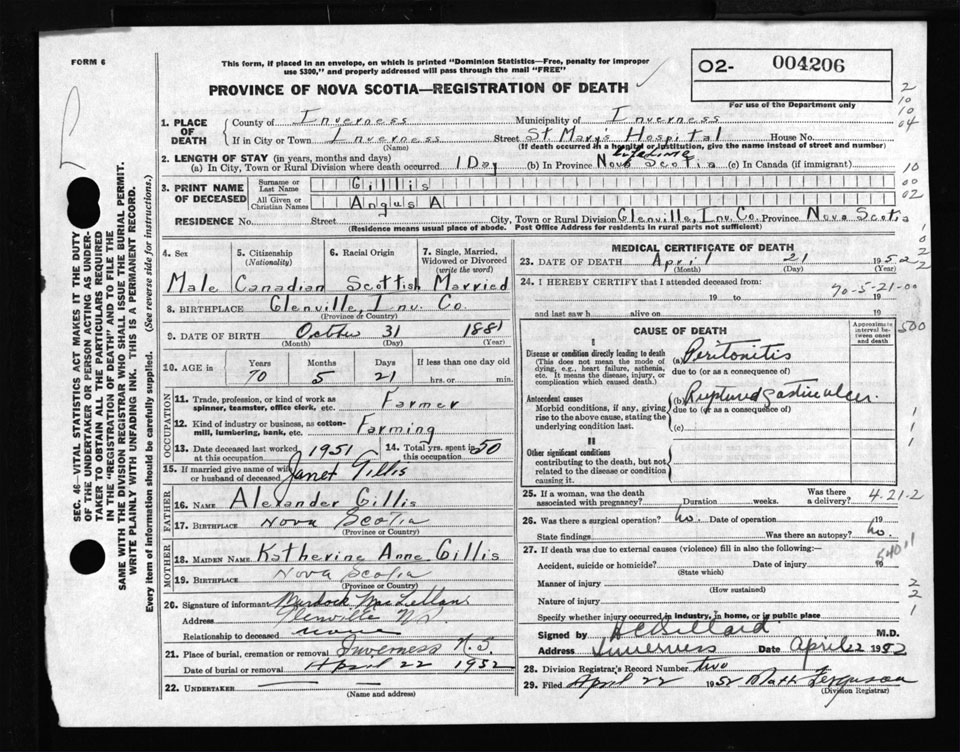 FORM 6
This form, if placed in an envelope, on which is printed "Dominion Statistics—Free, penalty for improper
use $300," and properly addressed will pass through the mail "FREE"
PROVINCE OF NOVA SCOTIA—REGISTRATION OF DEATH
O2- 004206
For use of the Department only
2
10
10
04
1. PLACE OF DEATH
County of Inverness Municipality of Inverness
If in City or Town Inverness Street St. Mary's Hospital House No.
(Name) (If death occurred in a hospital or institution, give the name instead of street and number)
2. LENGTH OF STAY (in years, months and days)
(a) In City, Town or Rural Division where death occurred 1 Day (b) In Province Nova Scotia Lifetime (c) In Canada (if immigrant)
10
00
02
3. PRINT NAME OF DECEASED
Surname or Last Name Gillis
All Given or Christian Names Angus A
RESIDENCE No. Street City, Town or Rural Division Glenville, Inv. Co. Province Nova Scotia
(Residence means usual place of abode. Post Office Address for residents in rural parts not sufficient)
4. Sex 5. Citizenship (Nationality) 6. Racial Origin 7. Single, Married, Widowed or Divorced (write the word)
Male Canadian Scottish Married
8. BIRTHPLACE Glenville, Inv. Co.
(Province or Country)
9. DATE OF BIRTH October 31 1881
(Month) (Day) (Year)
10. AGE in Years Months Days If less than one day old
70 5 21 hrs. or min.
OCCUPATION
11. Trade, profession, or kind of work as spinner, teamster, office clerk, etc. Farmer
12. Kind of industry or business, as cotton-mill, lumbering, bank, etc. Farming
13. Date deceased last worked at this occupation 1951 14. Total yrs. spent in this occupation 50
15. If married give name of wife or husband of deceased Janet Gillis
FATHER
16. NAME Alexander Gillis
17. BIRTHPLACE Nova Scotia
(Province or Country)
MOTHER
18. MAIDEN NAME Katherine Anne Gillis
19. BIRTHPLACE Nova Scotia
(Province or Country)
20. Signature of informant Murdock MacLellan
Address Glenville N.S.
Relationship to deceased none
21. Place of burial, cremation or removal Inverness N.S.
Date of burial or removal April 22 1952
22. UNDERTAKER
(Name and address)
MEDICAL CERTIFICATE OF DEATH
23. DATE OF DEATH April 21 1952
(Month) (Day) (Year)
24. I HEREBY CERTIFY that I attended deceased from:
19 to 19
70-5-21-00
and last saw h alive on 19
CAUSE OF DEATH
Approximate interval between onset and death
500
I
Disease or condition directly leading to death
(This does not mean the mode of dying, e.g., heart failure, asthenia, etc. It means the disease, injury, or complication which caused death.)
(a) Peritonitis
due to (or as a consequence of)
Antecedent causes
Morbid conditions, if any, giving rise to the above cause, stating the underlying condition last.
(b) Ruptured gastric ulcer
due to (or as a consequence of)
(c)
II
Other significant conditions
contributing to the death, but not related to the disease or condition causing it.
25. If a woman, was the death associated with pregnancy? Duration weeks. Was there a delivery?
4-21-2
26. Was there a surgical operation? no. Date of operation 19
State findings Was there an autopsy? no.
27. If death was due to external causes (violence) fill in also the following:—
Accident, suicide or homicide? Date of injury 19
(State which)
Manner of injury
(How sustained)
Nature of injury
Specify whether injury occurred in industry, in home, or in public place
Signed by M.D.
Address Inverness Date April 22 1952
28. Division Registrar's Record Number two
29. Filed April 22 1952 Matt Ferguson
(Division Registrar)
SEC. 46—VITAL STATISTICS ACT MAKES IT THE DUTY
OF THE UNDERTAKER OR PERSON ACTING AS UNDER-
TAKER TO OBTAIN ALL THE PARTICULARS REQUIRED
IN THE "REGISTRATION OF DEATH" AND TO FILE THE
SAME WITH THE DIVISION REGISTRAR WHO SHALL ISSUE THE BURIAL PERMIT.
WRITE PLAINLY WITH UNFADING INK. THIS IS A PERMANENT RECORD.
Every item of information should be carefully supplied. (See reverse side for instructions.)